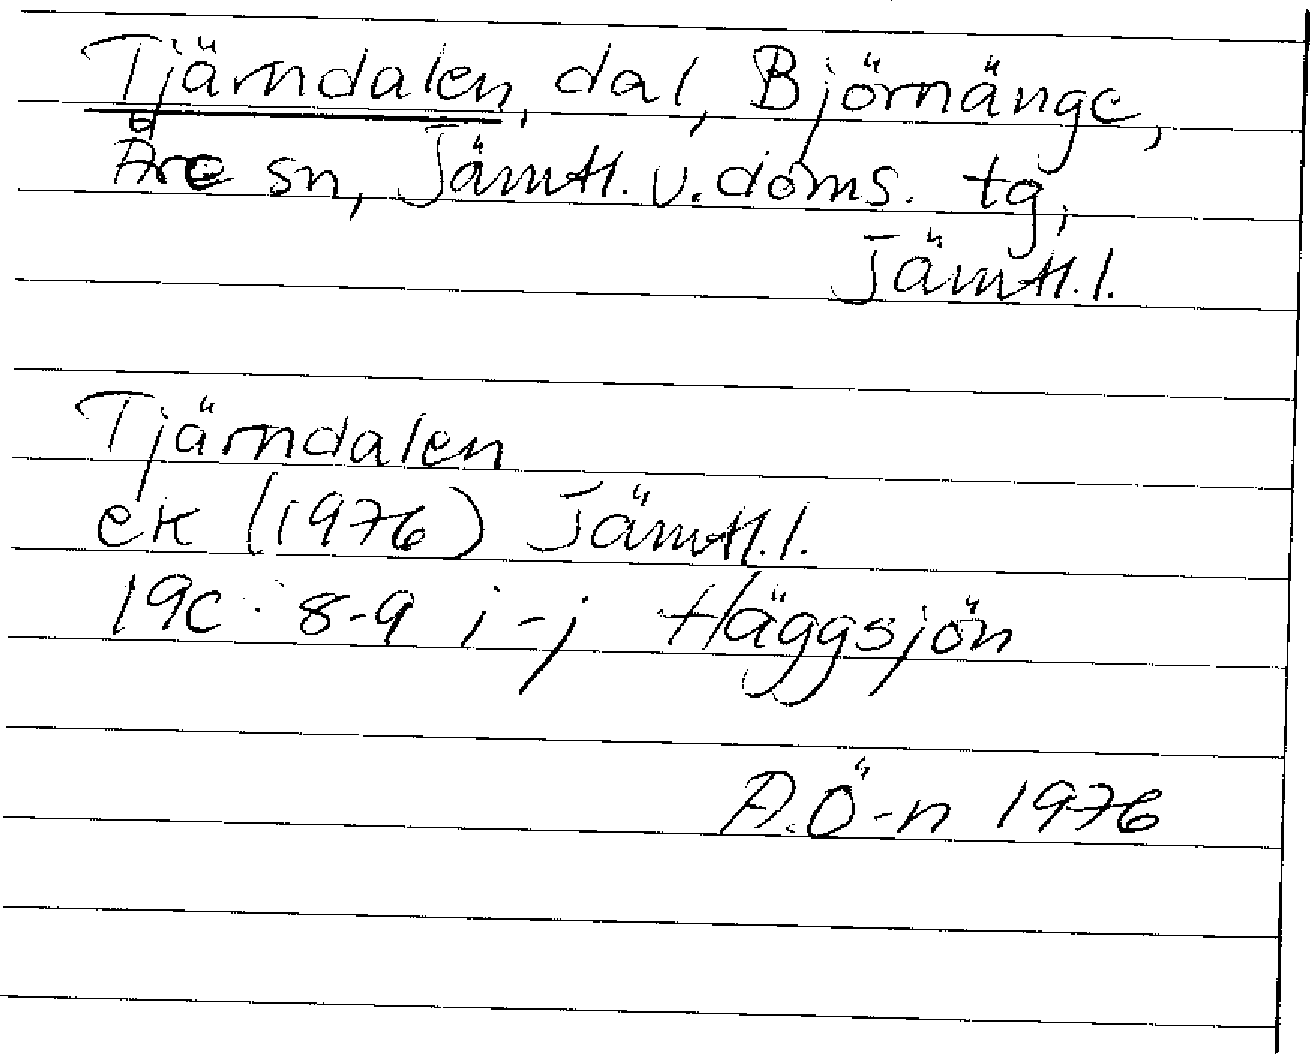 Tjärndalen, dal, Björnänge,
Åre sn, Jämtl. v. doms. tg,
Jämtl. l.
Tjärndalen
ek (1976) Jämtl. l.
19C: 8-9 i-j Häggsjön
A. Ö-n 1976